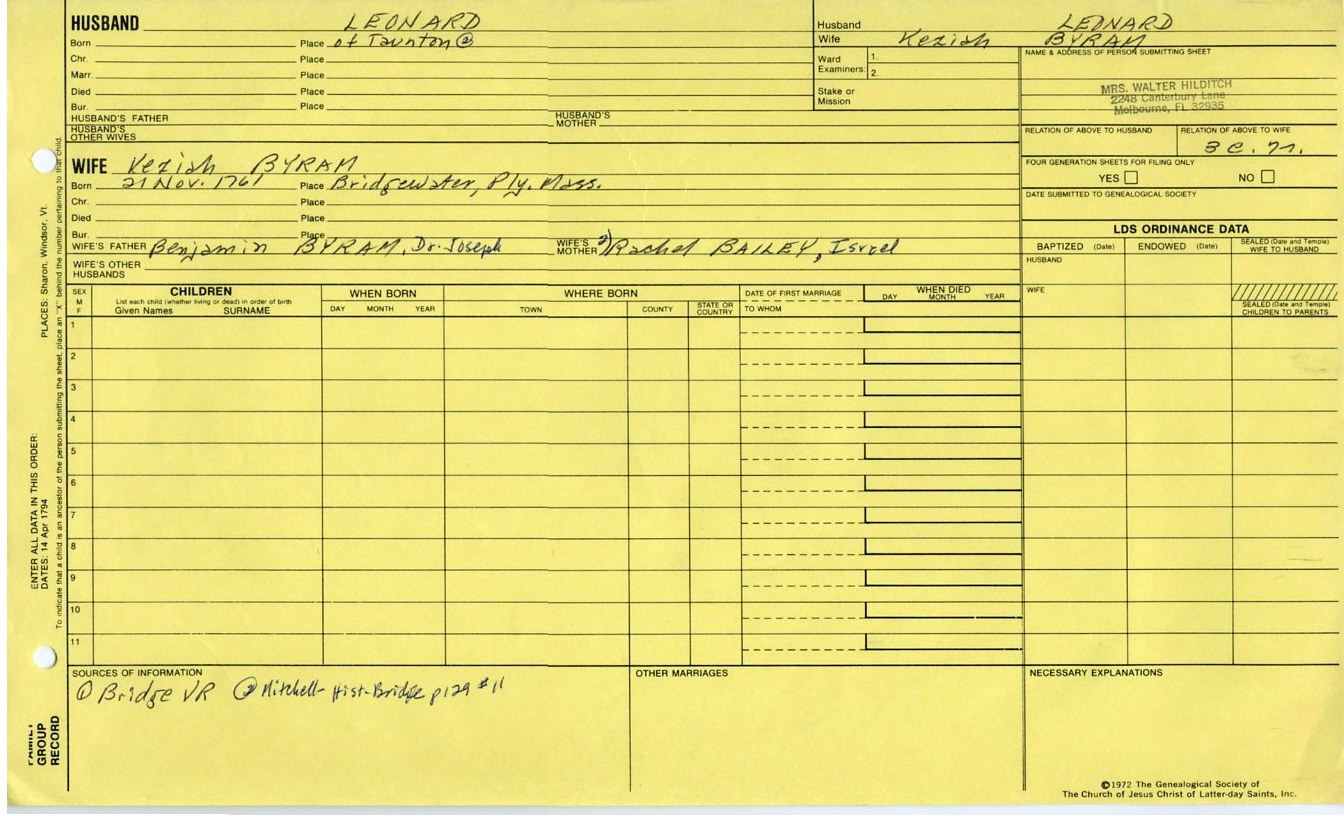 HUSBAND LEONARD
Born Place of Taunton ②
Chr. Place
Marr. Place
Died Place
Bur. Place
HUSBAND'S FATHER HUSBAND'S MOTHER
HUSBAND'S OTHER WIVES
Husband LEONARD
Wife Keziah BYRAM
Ward Examiners: 1.
2.
Stake or Mission
NAME & ADDRESS OF PERSON SUBMITTING SHEET
MRS. WALTER HILDITCH
2248 Canterbury Lane
Melbourne, FL 32935
RELATION OF ABOVE TO HUSBAND RELATION OF ABOVE TO WIFE
3 C. 7 r.
FOUR GENERATION SHEETS FOR FILING ONLY
YES NO
DATE SUBMITTED TO GENEALOGICAL SOCIETY
WIFE Keziah BYRAM
Born 21 Nov. 1761 Place Bridgewater, Ply. Mass.
Chr. Place
Died Place
Bur. Place
WIFE'S FATHER Benjamin BYRAM, Dr. Joseph WIFE'S MOTHER 2) Rachel BAILEY, Israel
WIFE'S OTHER HUSBANDS
LDS ORDINANCE DATA
BAPTIZED (Date) ENDOWED (Date) SEALED (Date and Temple) WIFE TO HUSBAND
HUSBAND
WIFE
SEALED (Date and Temple) CHILDREN TO PARENTS
SEX M F
CHILDREN
List each child (whether living or dead) in order of birth
Given Names SURNAME
WHEN BORN
DAY MONTH YEAR
WHERE BORN
TOWN COUNTY STATE OR COUNTRY
DATE OF FIRST MARRIAGE
TO WHOM
WHEN DIED
DAY MONTH YEAR
1
2
3
4
5
6
7
8
9
10
11
SOURCES OF INFORMATION
① Bridge VR ② Mitchell-Hist-Bridge p129 #11
OTHER MARRIAGES
NECESSARY EXPLANATIONS
©1972 The Genealogical Society of
The Church of Jesus Christ of Latter-day Saints, Inc.
PLACES: Sharon, Windsor, Vt.
To indicate that a child is an ancestor of the person submitting the sheet, place an "X" behind the number pertaining to that child.
ENTER ALL DATA IN THIS ORDER:
DATES: 14 Apr 1794
FAMILY
GROUP
RECORD